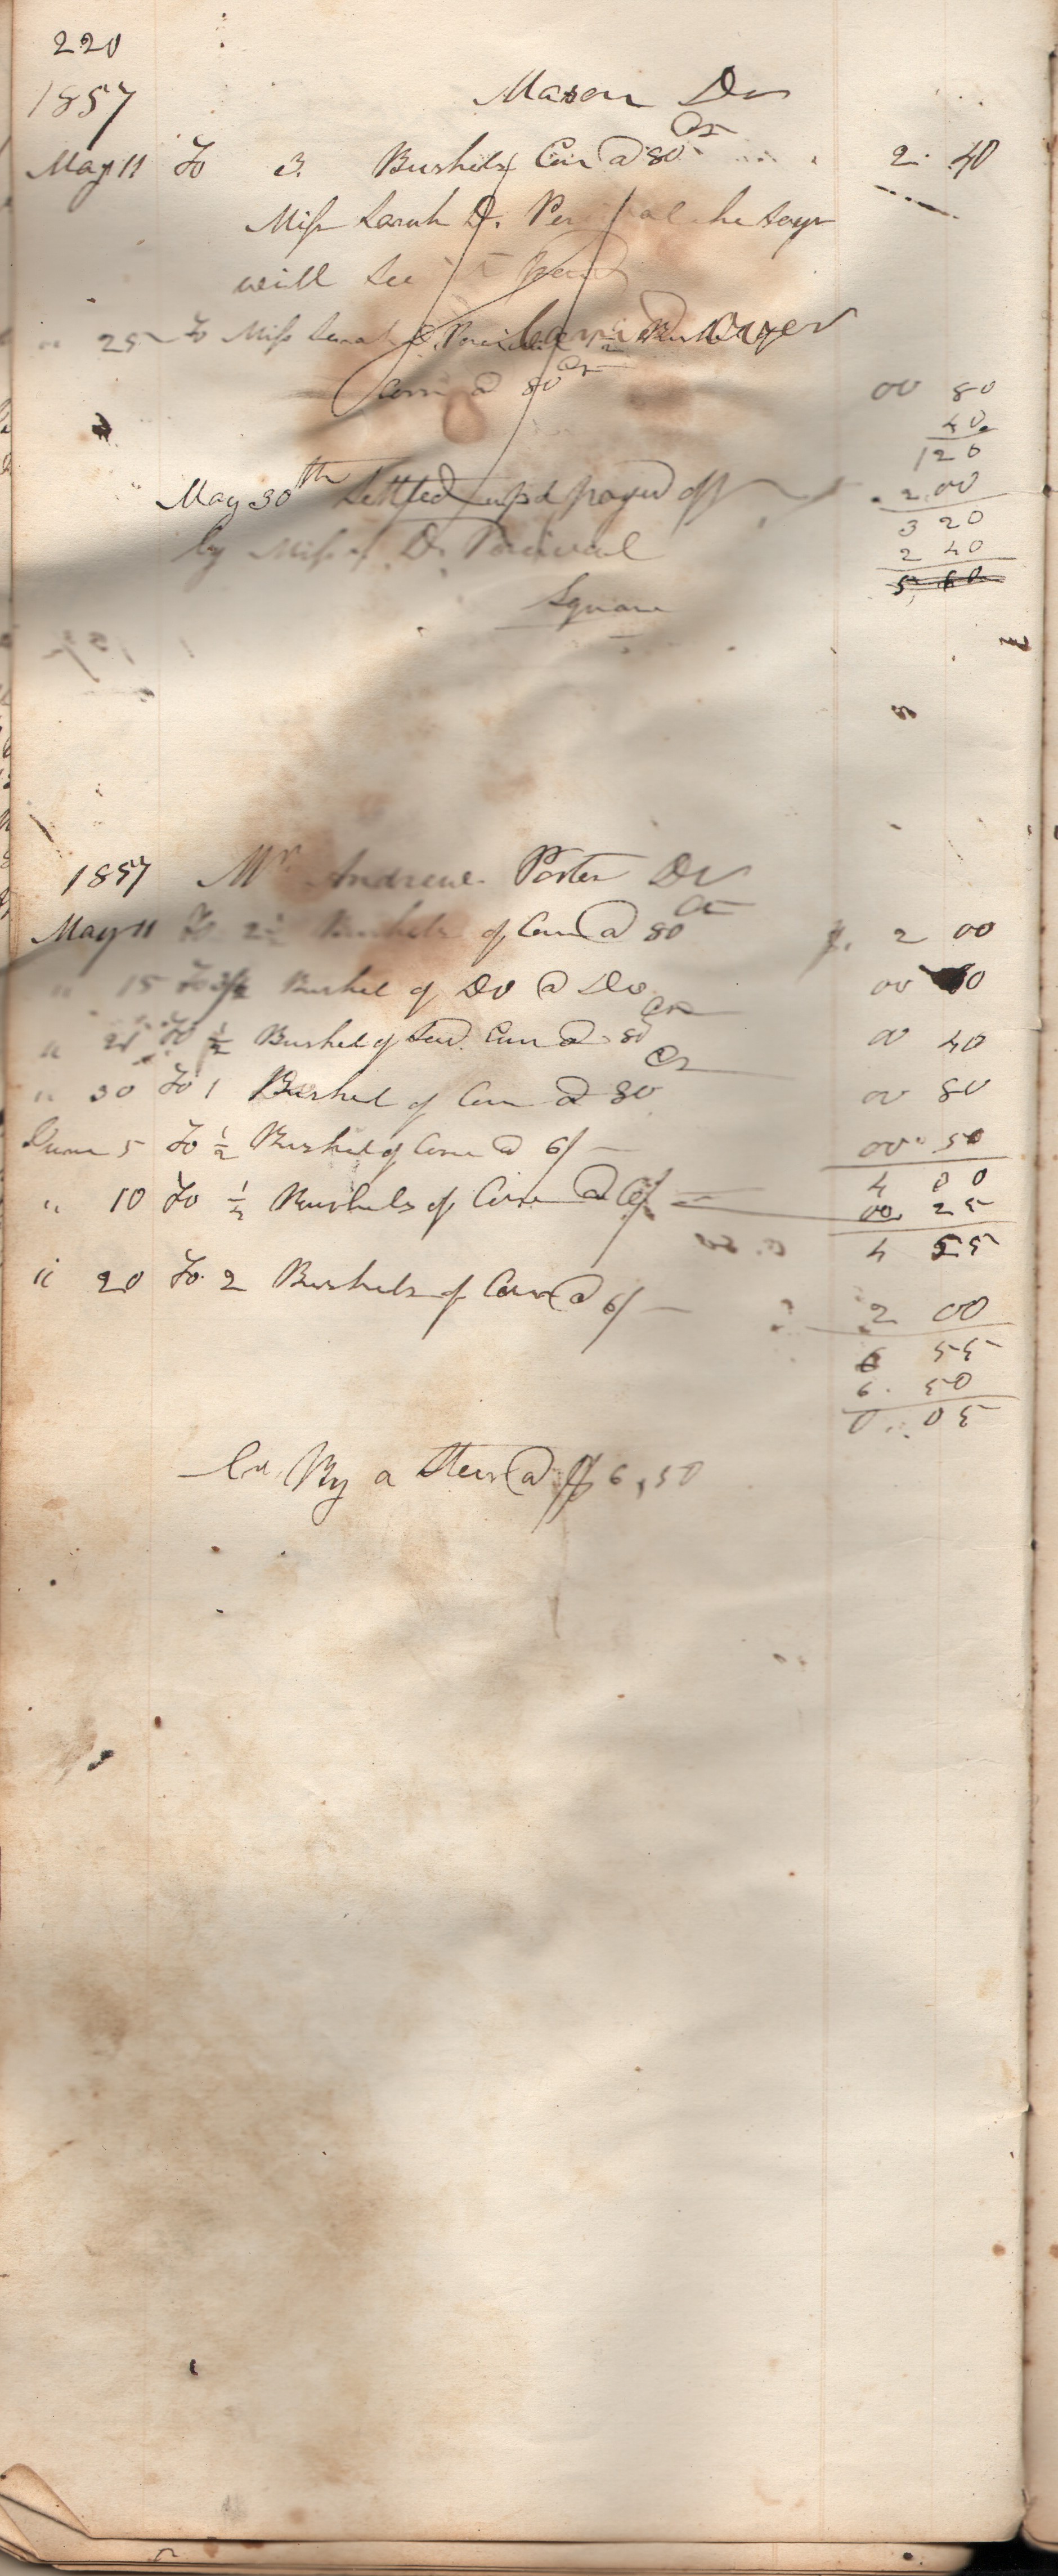 220
1857 Mason Dr
May 11 To 3. Bushels Corn @ 80 Cts 2. 40
Miss Sarah D. he says
will see paid
" 25 To Miss Sarah D. Percival
Corn @ 80 Cts 00 80
40
120
May 30th Settled up & payed off 2.00
3 20
by Miss S. D. Percival 2 40
5, 60
Square
1857 Mr Andrew Porter Dr
May 11 To 2½ Bushels of Corn @ 80 Cts $. 2 00
" 15 To Bushel of Do @ Do 00
" 21 To ½ Bushel of Seed Corn @ 80 Cts 00 40
" 30 To 1 Bushel of Corn @ 80 Cts 00 80
June 5 To ½ Bushel of Corn @ 6/ 00 50
" 10 To ½ Bushels of Corn @ 6/ 00 25
4 55
" 20 To 2 Bushels of Corn @ 6/ 2 00
6 55
6. 50
0. 05
Cr. By a Steer @ $6,50